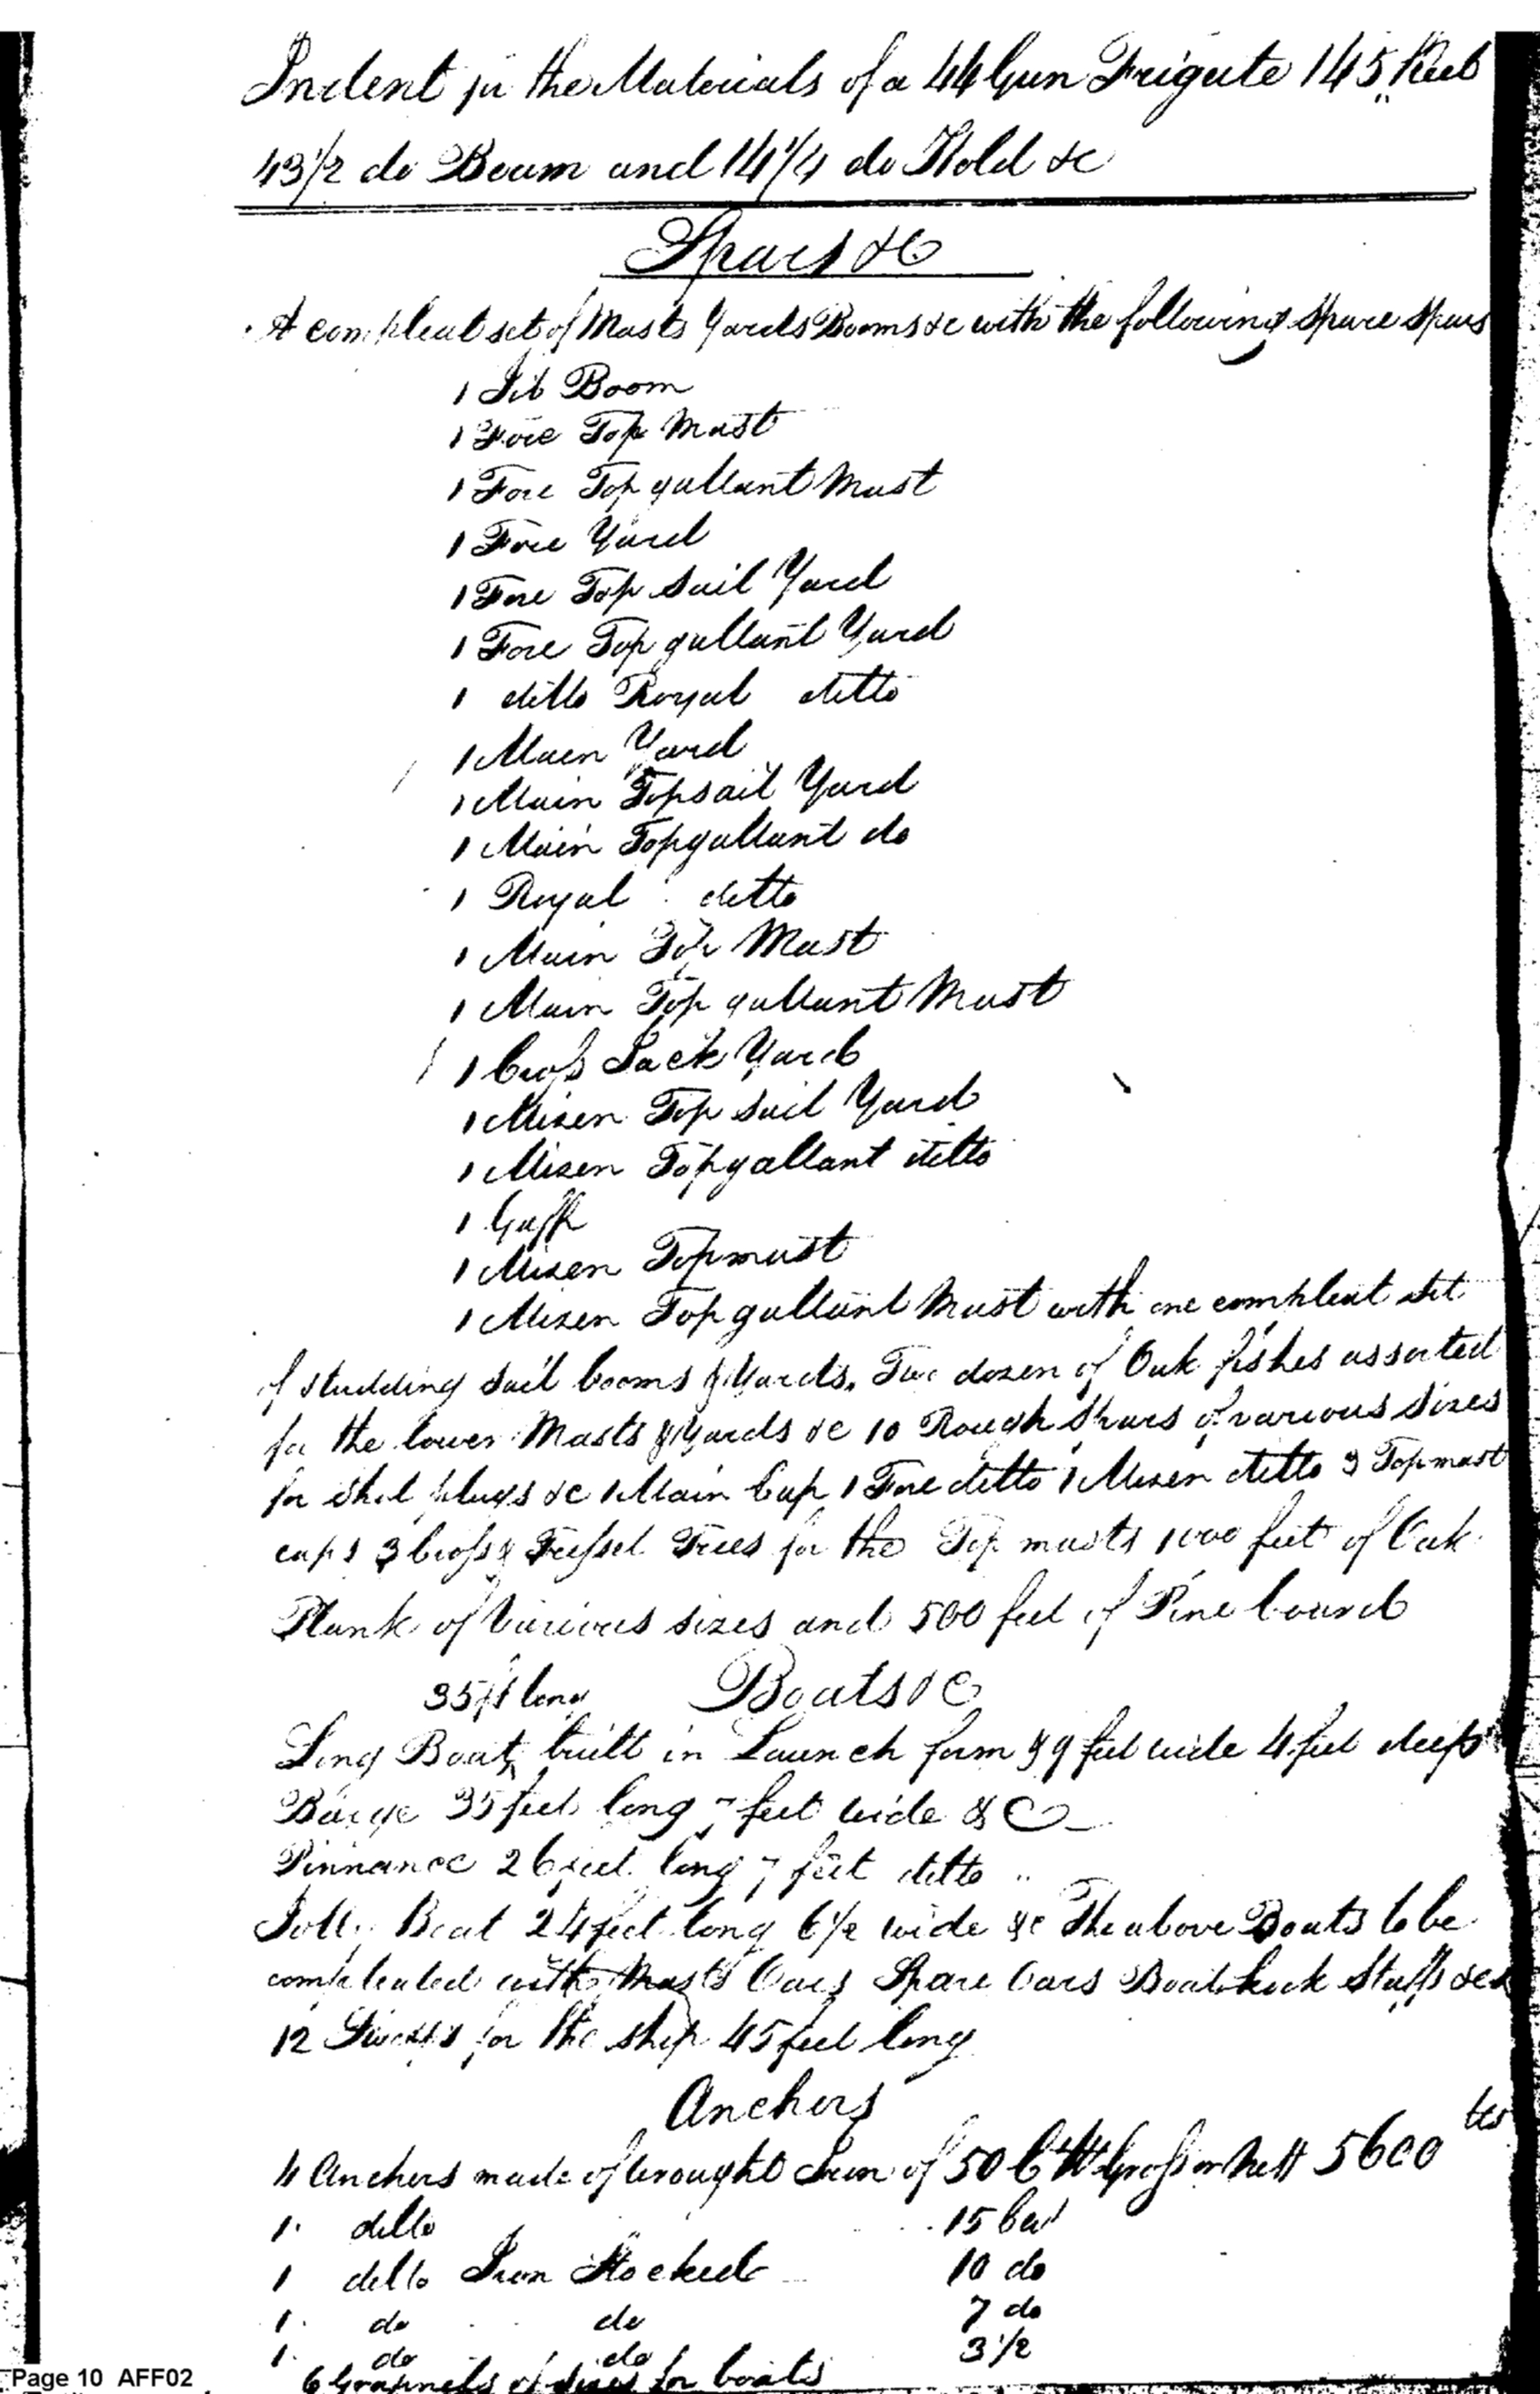 Indent for the Materials of a 44 Gun Frigate 145 Keel
43 1/2 do Beam and 14 1/4 do Hold &c
Spars &c
A compleat set of Masts Yards Booms &c with the following spare spars
1 Jib Boom
1 Fore Top Mast
1 Fore Top gallant Mast
1 Fore Yard
1 Fore Top Sail Yard
1 Fore Top gallant Yard
1 ditto Royal ditto
1 Main Yard
1 Main Topsail Yard
1 Main Topgallant do
1 Royal ditto
1 Main Top Mast
1 Main Top gallant Mast
1 Cross Jack Yard
1 Mizen Top Sail Yard
1 Mizen Topgallant ditto
1 Gaff
1 Mizen Topmast
1 Mizen Topgallant Mast with one compleat set
of studding sail booms & Yards. Two dozen of Oak fishes assorted
for the lower Masts & Yards &c 10 Rough Spars of various sizes
for shot plugs &c 1 Main Cap 1 Fore ditto 1 Mizen ditto 3 Topmast
caps 3 Cross & Tressel Trees for the Top masts 1000 feet of Oak
Plank of Various sizes and 500 feet of Pine board
35 ft long Boats &c
Long Boat built in Launch form & 9 feet wide 4 feet deep
Barge 35 feet long 7 feet wide &c
Pinnance 26 feet long 7 feet ditto "
Jolly Boat 24 feet long 6 1/2 wide &c The above Boats to be
compleated with Masts Oars Spare Oars Boathook Staffs &c
12 Sweeps for the ship 45 feet long
Anchors
4 Anchors made of wrought Iron of 50 Cwt Gross or Nett 5600 lbs
1 ditto 15 Cwt
1 ditto Iron Stocked 10 do
1 do do 7 do
1 do do 3 1/2
6 Grapnels of sizes for boats
Page 10 AFF02